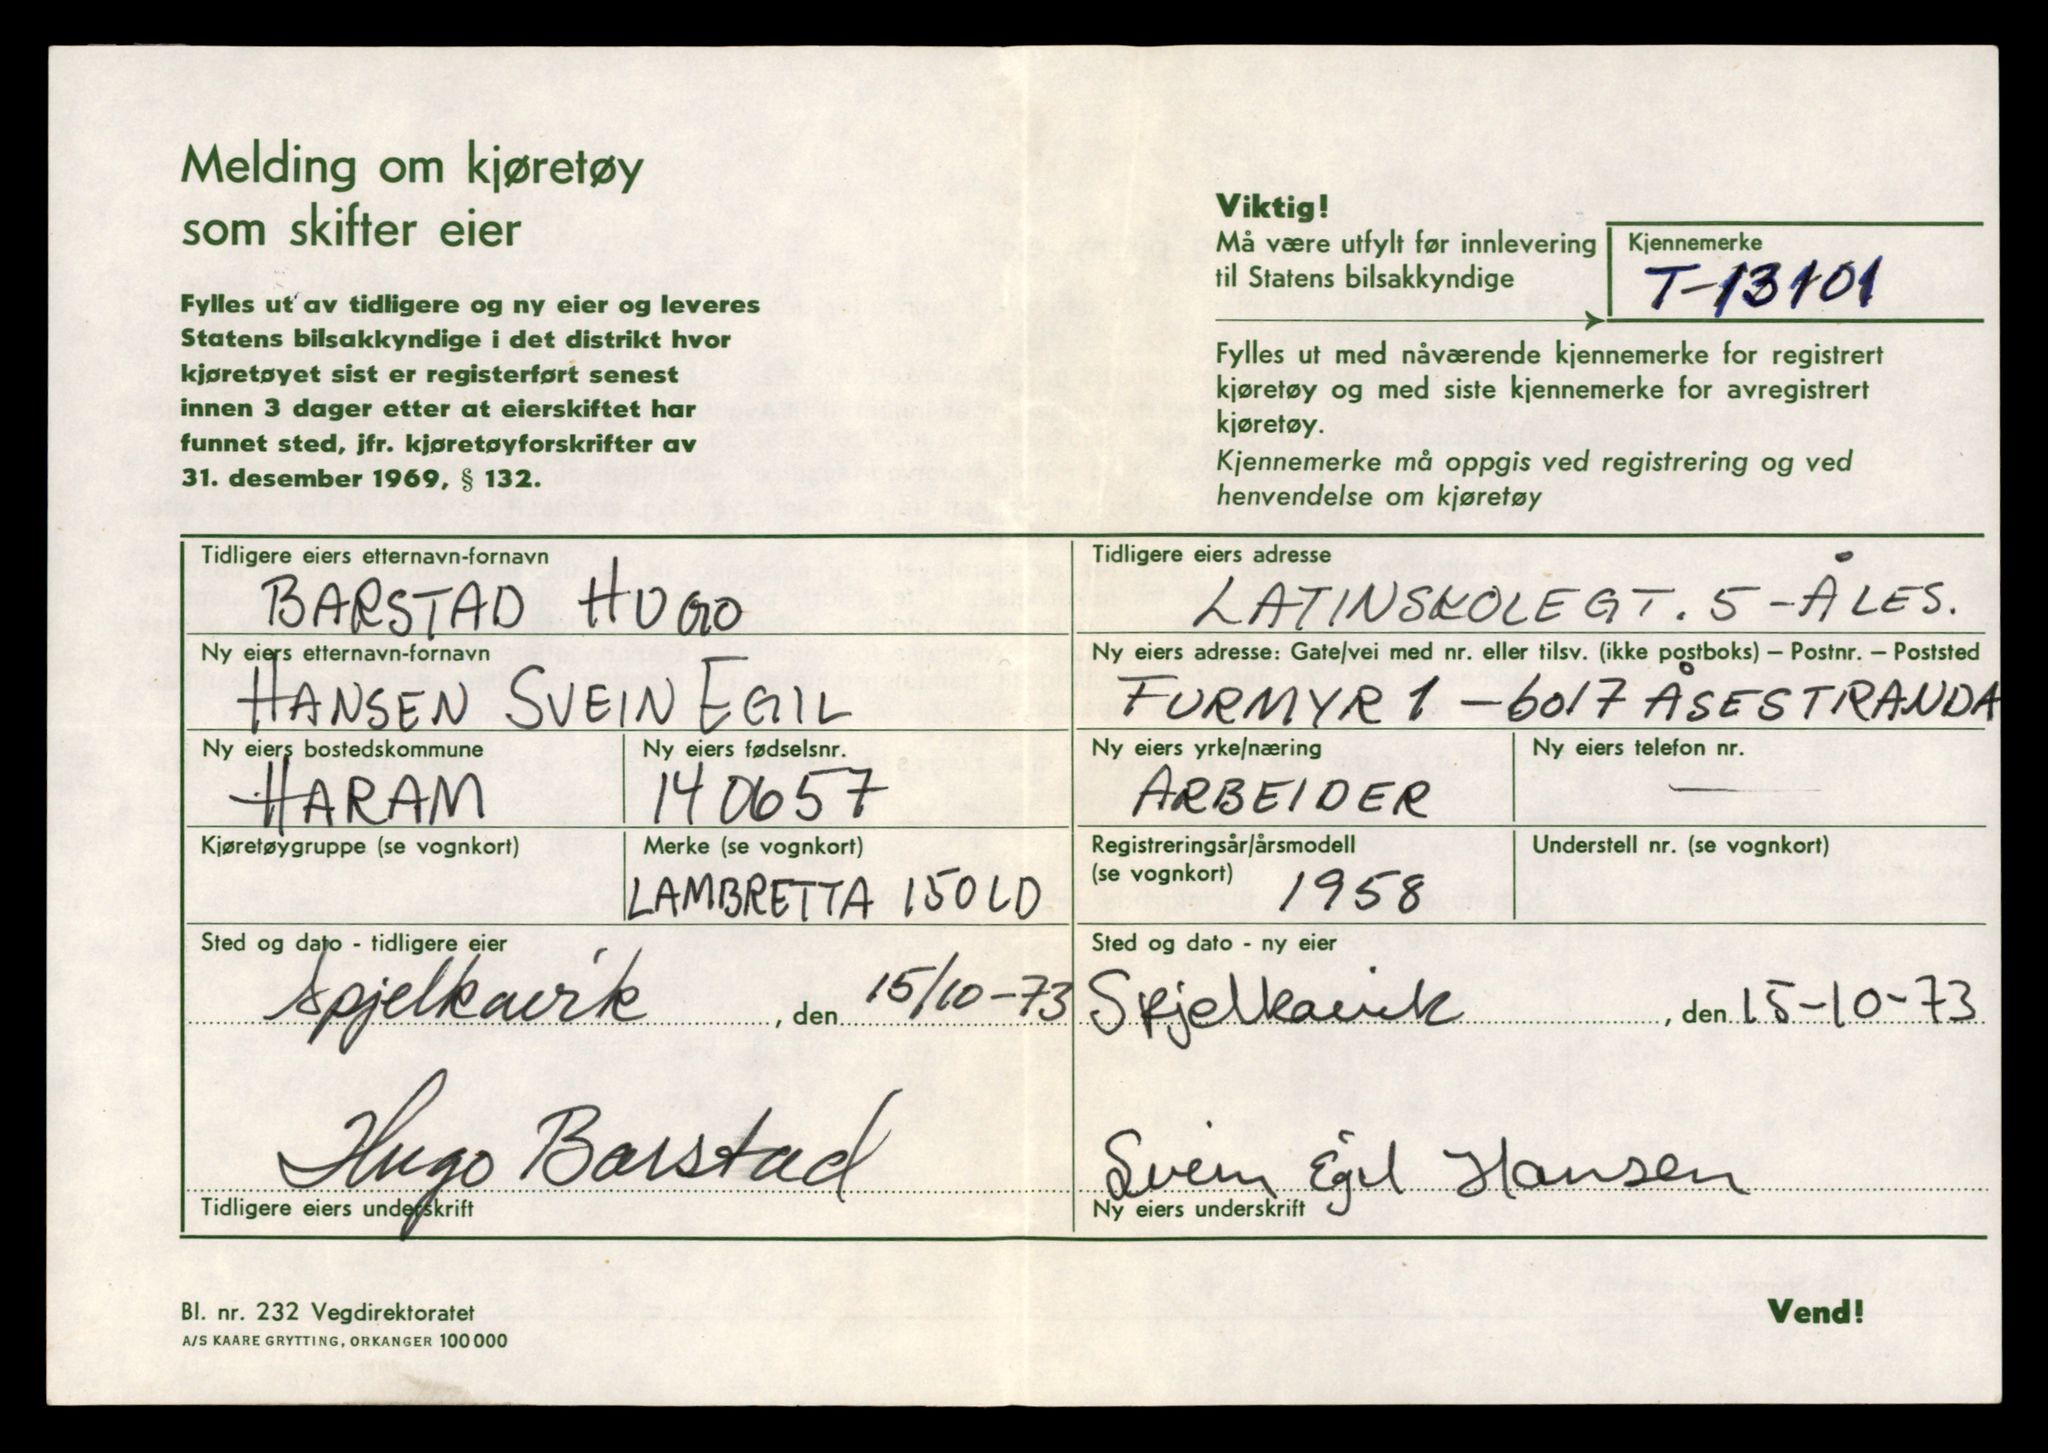 Melding om kjøretøy
som skifter eier
Fylles ut av tidligere og ny eier og leveres
Statens bilsakkyndige i det distrikt hvor
kjøretøyet sist er registerført senest
innen 3 dager etter at eierskiftet har
funnet sted, jfr. kjøretøyforskrifter av
31. desember 1969, § 132.
Viktig!
Må være utfylt før innlevering
til Statens bilsakkyndige
Kjennemerke
T-13101
Fylles ut med nåværende kjennemerke for registrert
kjøretøy og med siste kjennemerke for avregistrert
kjøretøy.
Kjennemerke må oppgis ved registrering og ved
henvendelse om kjøretøy
Tidligere eiers etternavn-fornavn
BARSTAD HUGO
Tidligere eiers adresse
LATINSKOLEGT. 5 - ÅLES.
Ny eiers etternavn-fornavn
HANSEN SVEIN EGIL
Ny eiers adresse: Gate/vei med nr. eller tilsv. (ikke postboks) – Postnr. – Poststed
FURMYR 1 - 6017 ÅSESTRANDA
Ny eiers bostedskommune
HARAM
Ny eiers fødselsnr.
140657
Ny eiers yrke/næring
ARBEIDER
Ny eiers telefon nr.
—
Kjøretøygruppe (se vognkort)
Merke (se vognkort)
LAMBRETTA 150 LD
Registreringsår/årsmodell
(se vognkort) 1958
Understell nr. (se vognkort)
Sted og dato - tidligere eier
Spjelkavik , den 15/10-73
Sted og dato - ny eier
Spjelkavik , den 15-10-73
Hugo Barstad
Tidligere eiers underskrift
Svein Egil Hansen
Ny eiers underskrift
Bl. nr. 232 Vegdirektoratet
A/S KAARE GRYTTING, ORKANGER 100 000
Vend!